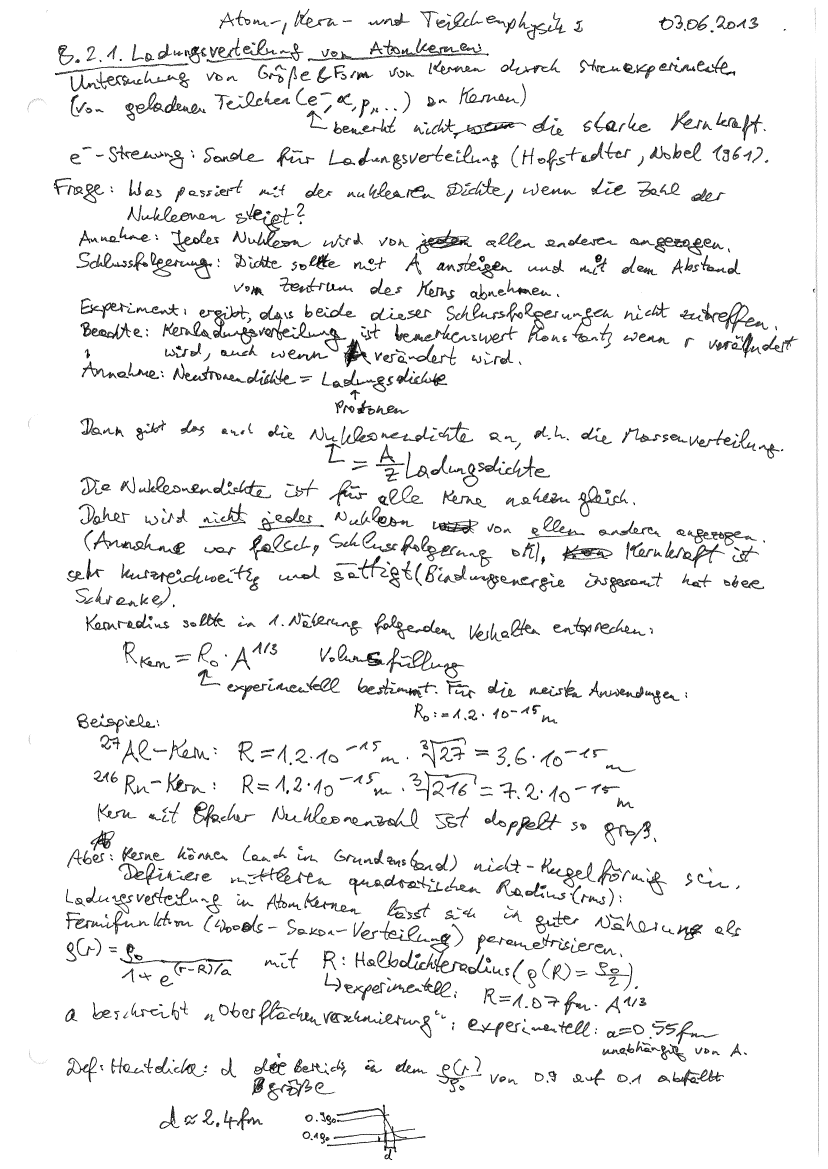 Atom-, Kern- und Teilchenphysik I 03.06.2013
8.2.1. Ladungsverteilung von Atomkernen.
Untersuchung von Größe & Form von Kernen durch Streuexperimente
(von geladenen Teilchen (e⁻, α, p, ...) an Kernen)
bemerkt nicht die starke Kernkraft.
e⁻-Streuung: Sonde für Ladungsverteilung (Hofstadter, Nobel 1961).
Frage: Was passiert mit der nuklearen Dichte, wenn die Zahl der
Nukleonen steigt?
Annahme: Jedes Nukleon wird von allen anderen angezogen.
Schlussfolgerung: Dichte sollte mit A ansteigen und mit dem Abstand
vom Zentrum des Kerns abnehmen.
Experiment: ergibt, dass beide dieser Schlussfolgerungen nicht zutreffen.
Beachte: Kernladungsverteilung ist bemerkenswert konstant, wenn r verändert
wird, auch wenn A verändert wird.
Annahme: Neutronendichte = Ladungsdichte
↑
Protonen
Dann gibt das auch die Nukleonendichte an, d.h. die Massenverteilung.
= A/Z Ladungsdichte
Die Nukleonendichte ist für alle Kerne nahezu gleich.
Daher wird nicht jedes Nukleon von allen anderen angezogen.
(Annahme war falsch, Schlussfolgerung ok), Kernkraft ist
sehr kurzreichweitig und sättigt (Bindungsenergie insgesamt hat obere
Schranke).
Kernradius sollte in 1. Näherung folgendem Verhalten entsprechen:
R_Kern = R₀ · A^1/3 Volumsfüllung
experimentell bestimmt. Für die meisten Anwendungen:
R₀ := 1.2 · 10⁻¹⁵ m
Beispiele:
²⁷Al-Kern: R = 1.2 · 10⁻¹⁵ m · ∛27 = 3.6 · 10⁻¹⁵ m
²¹⁶Rn-Kern: R = 1.2 · 10⁻¹⁵ m · ∛216 = 7.2 · 10⁻¹⁵ m
Kern mit 8facher Nukleonenzahl ist doppelt so groß.
Aber: Kerne können (auch im Grundzustand) nicht-kugelförmig sein.
Definiere mittleren quadratischen Radius (rms):
Ladungsverteilung in Atomkernen lässt sich in guter Näherung als
Fermifunktion (Woods-Saxon-Verteilung) parametrisieren.
ρ(r) = ρ₀ / (1 + e^(r-R)/a) mit R: Halbdichteradius (ρ(R) = ρ₀/2).
↳ experimentell: R = 1.07 fm · A^1/3
a beschreibt „Oberflächenverschmierung“; experimentell: a = 0.55 fm
unabhängig von A.
Def: Hautdicke: d Bereich, in dem ρ(r)/ρ₀ von 0.9 auf 0.1 abfällt
größe
d ≈ 2.4 fm
0.9ρ₀
0.1ρ₀
d